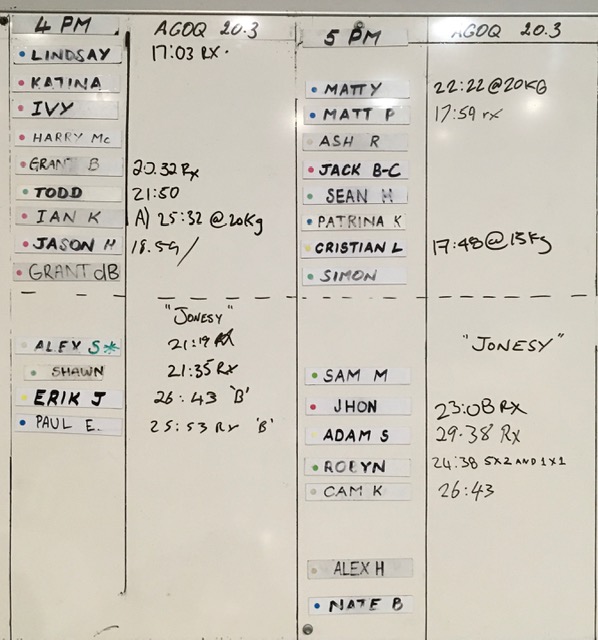 4 PM AGOQ 20.3
LINDSAY 17:03 RX.
KATINA
IVY
HARRY Mc
GRANT B 20.32 Rx
TODD 21:50
IAN K A) 25:32 @20Kg
JASON H 18.59/
GRANT dB
"JONESY"
ALEX S* 21:19 RX
SHAWN 21:35 RX
ERIK J 26:43 'B'
PAUL E. 25:53 RX 'B'
5 PM AGOQ 20.3
MATTY 22:22 @20KG
MATT P 17:59 rx
ASH R
JACK B-C
SEAN H
PATRINA K
CRISTIAN L 17:48 @15Kg
SIMON
"JONESY"
SAM M
JHON 23:08 RX
ADAM S 29.38 Rx
ROBYN 24:38 5X2 AND 1X1
CAM K 26:43
ALEX H
NATE B